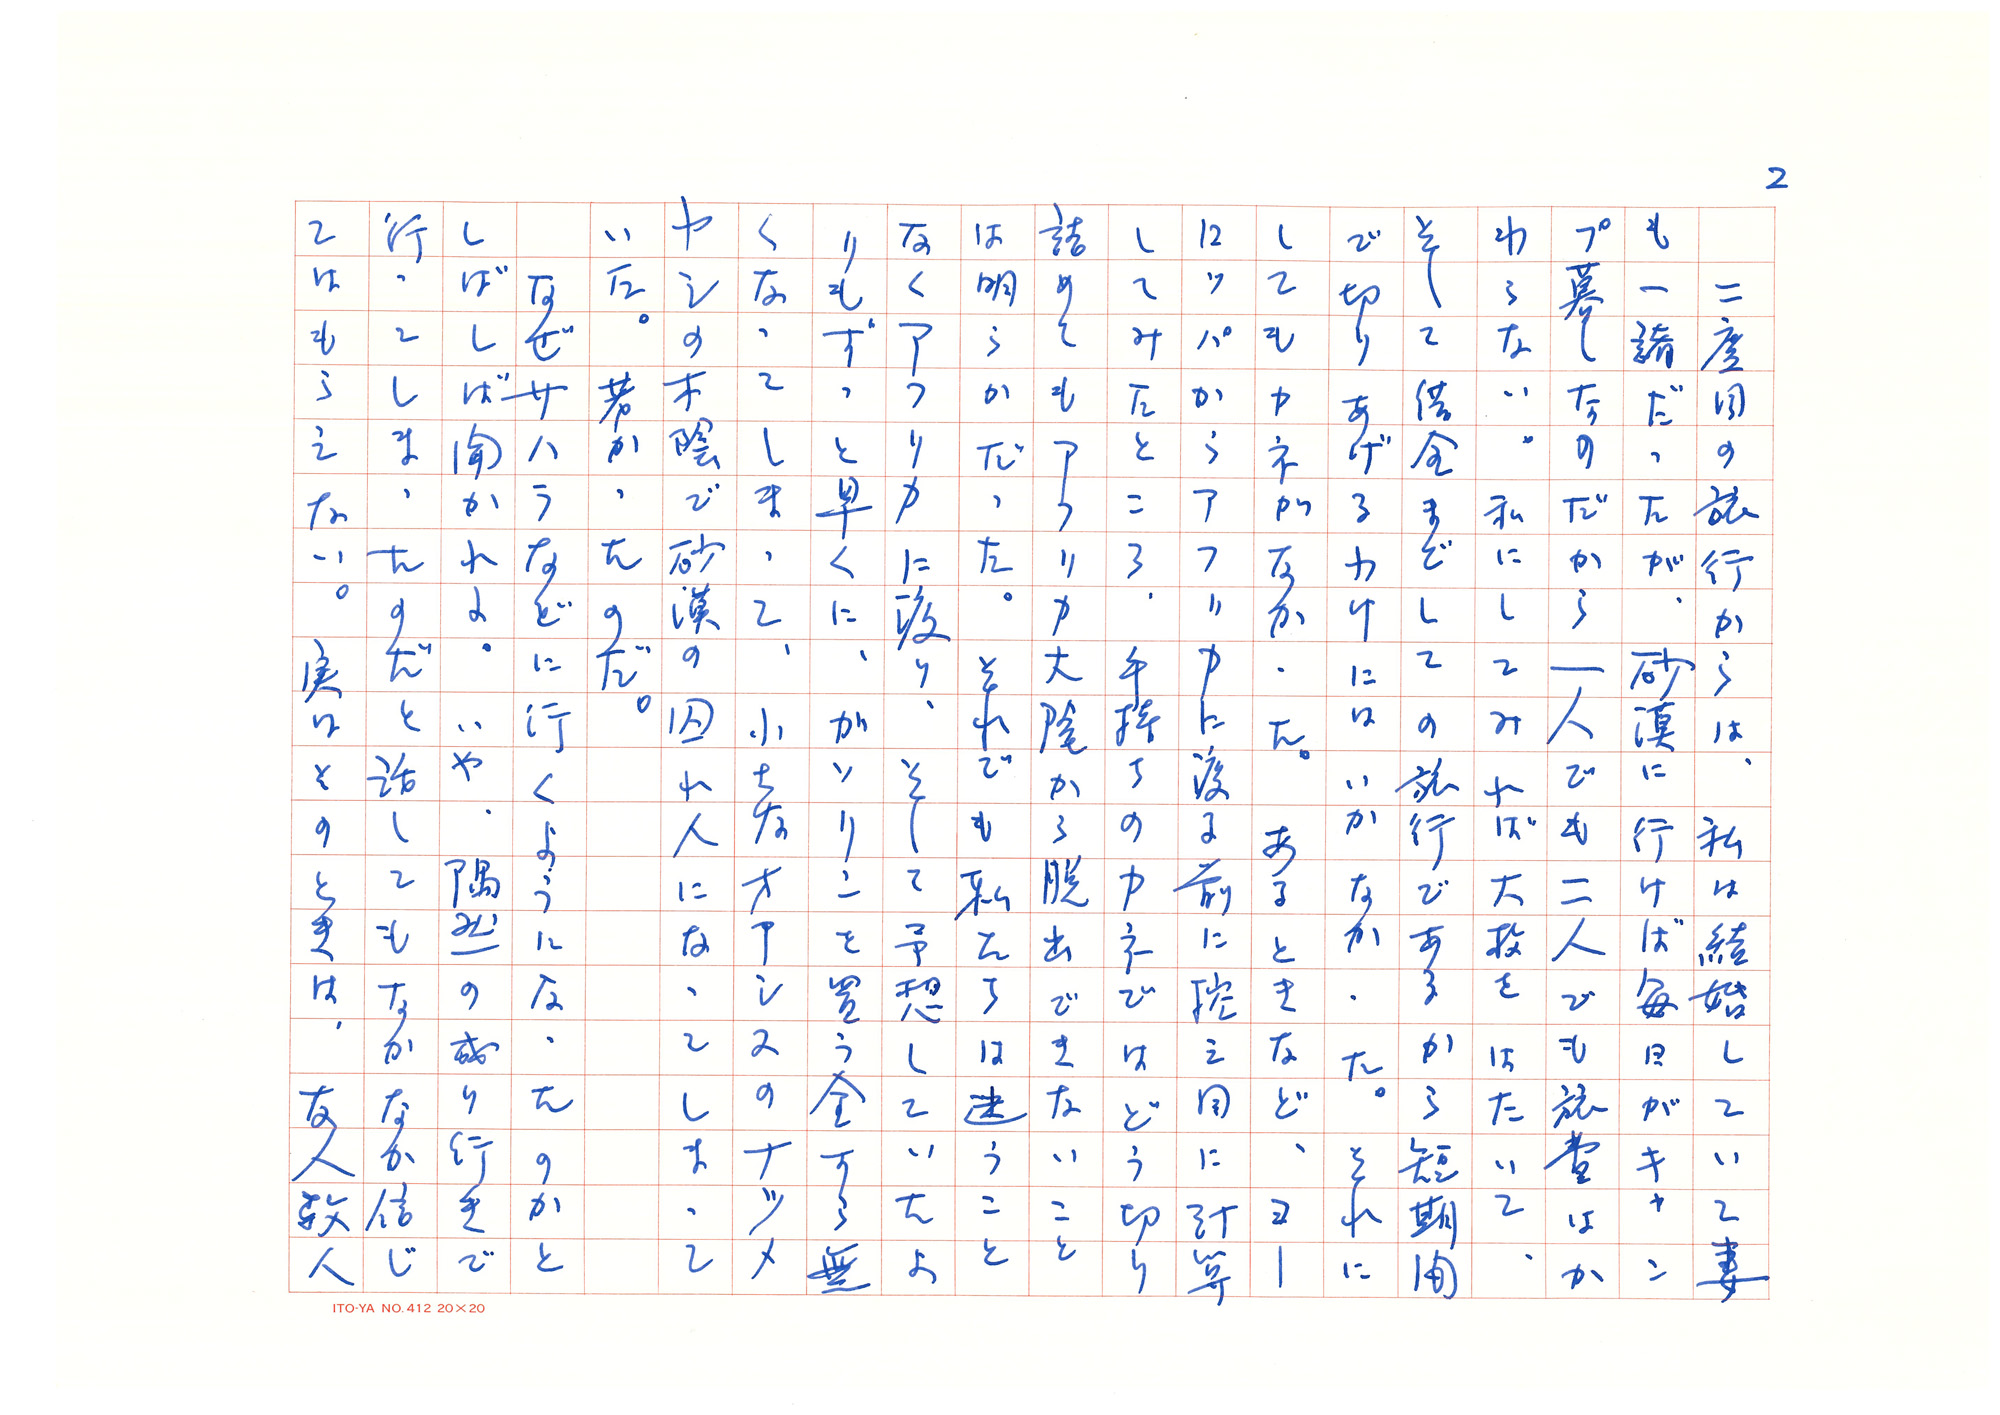 2
二度目の旅行からは、私は結婚していて妻
も一諸だったが、砂漠に行けば毎日がキャン
プ暮しなのだから、一人でも二人でも旅費はか
わらない。私にしてみれば大枚をはたいて、
そして借金までしての旅行であるから短期間
で切りあげるわけにはいかなかった。それに
してもカネがなかった。あるときなど、ヨー
ロッパからアフリカに渡る前に控え目に計算
してみたところ、手持ちのカネではどう切り
詰めてもアフリカ大陸から脱出できないこと
は明らかだった。それでも私たちは迷うこと
なくアフリカに渡り、そして予想していたよ
りもずっと早くに、ガソリンを買う金すら無
くなってしまって、小さなオアシスのナツメ
ヤシの木陰で砂漠の囚れ人になってしまって
いた。若かったのだ。
なぜサハラなどに行くようになったのかと
しばしば聞かれる。いや、偶然の成り行きで
行ってしまったのだと話してもなかなか信じ
てはもらえない。実はそのときは、友人数人
ITO-YA NO. 412 20×20